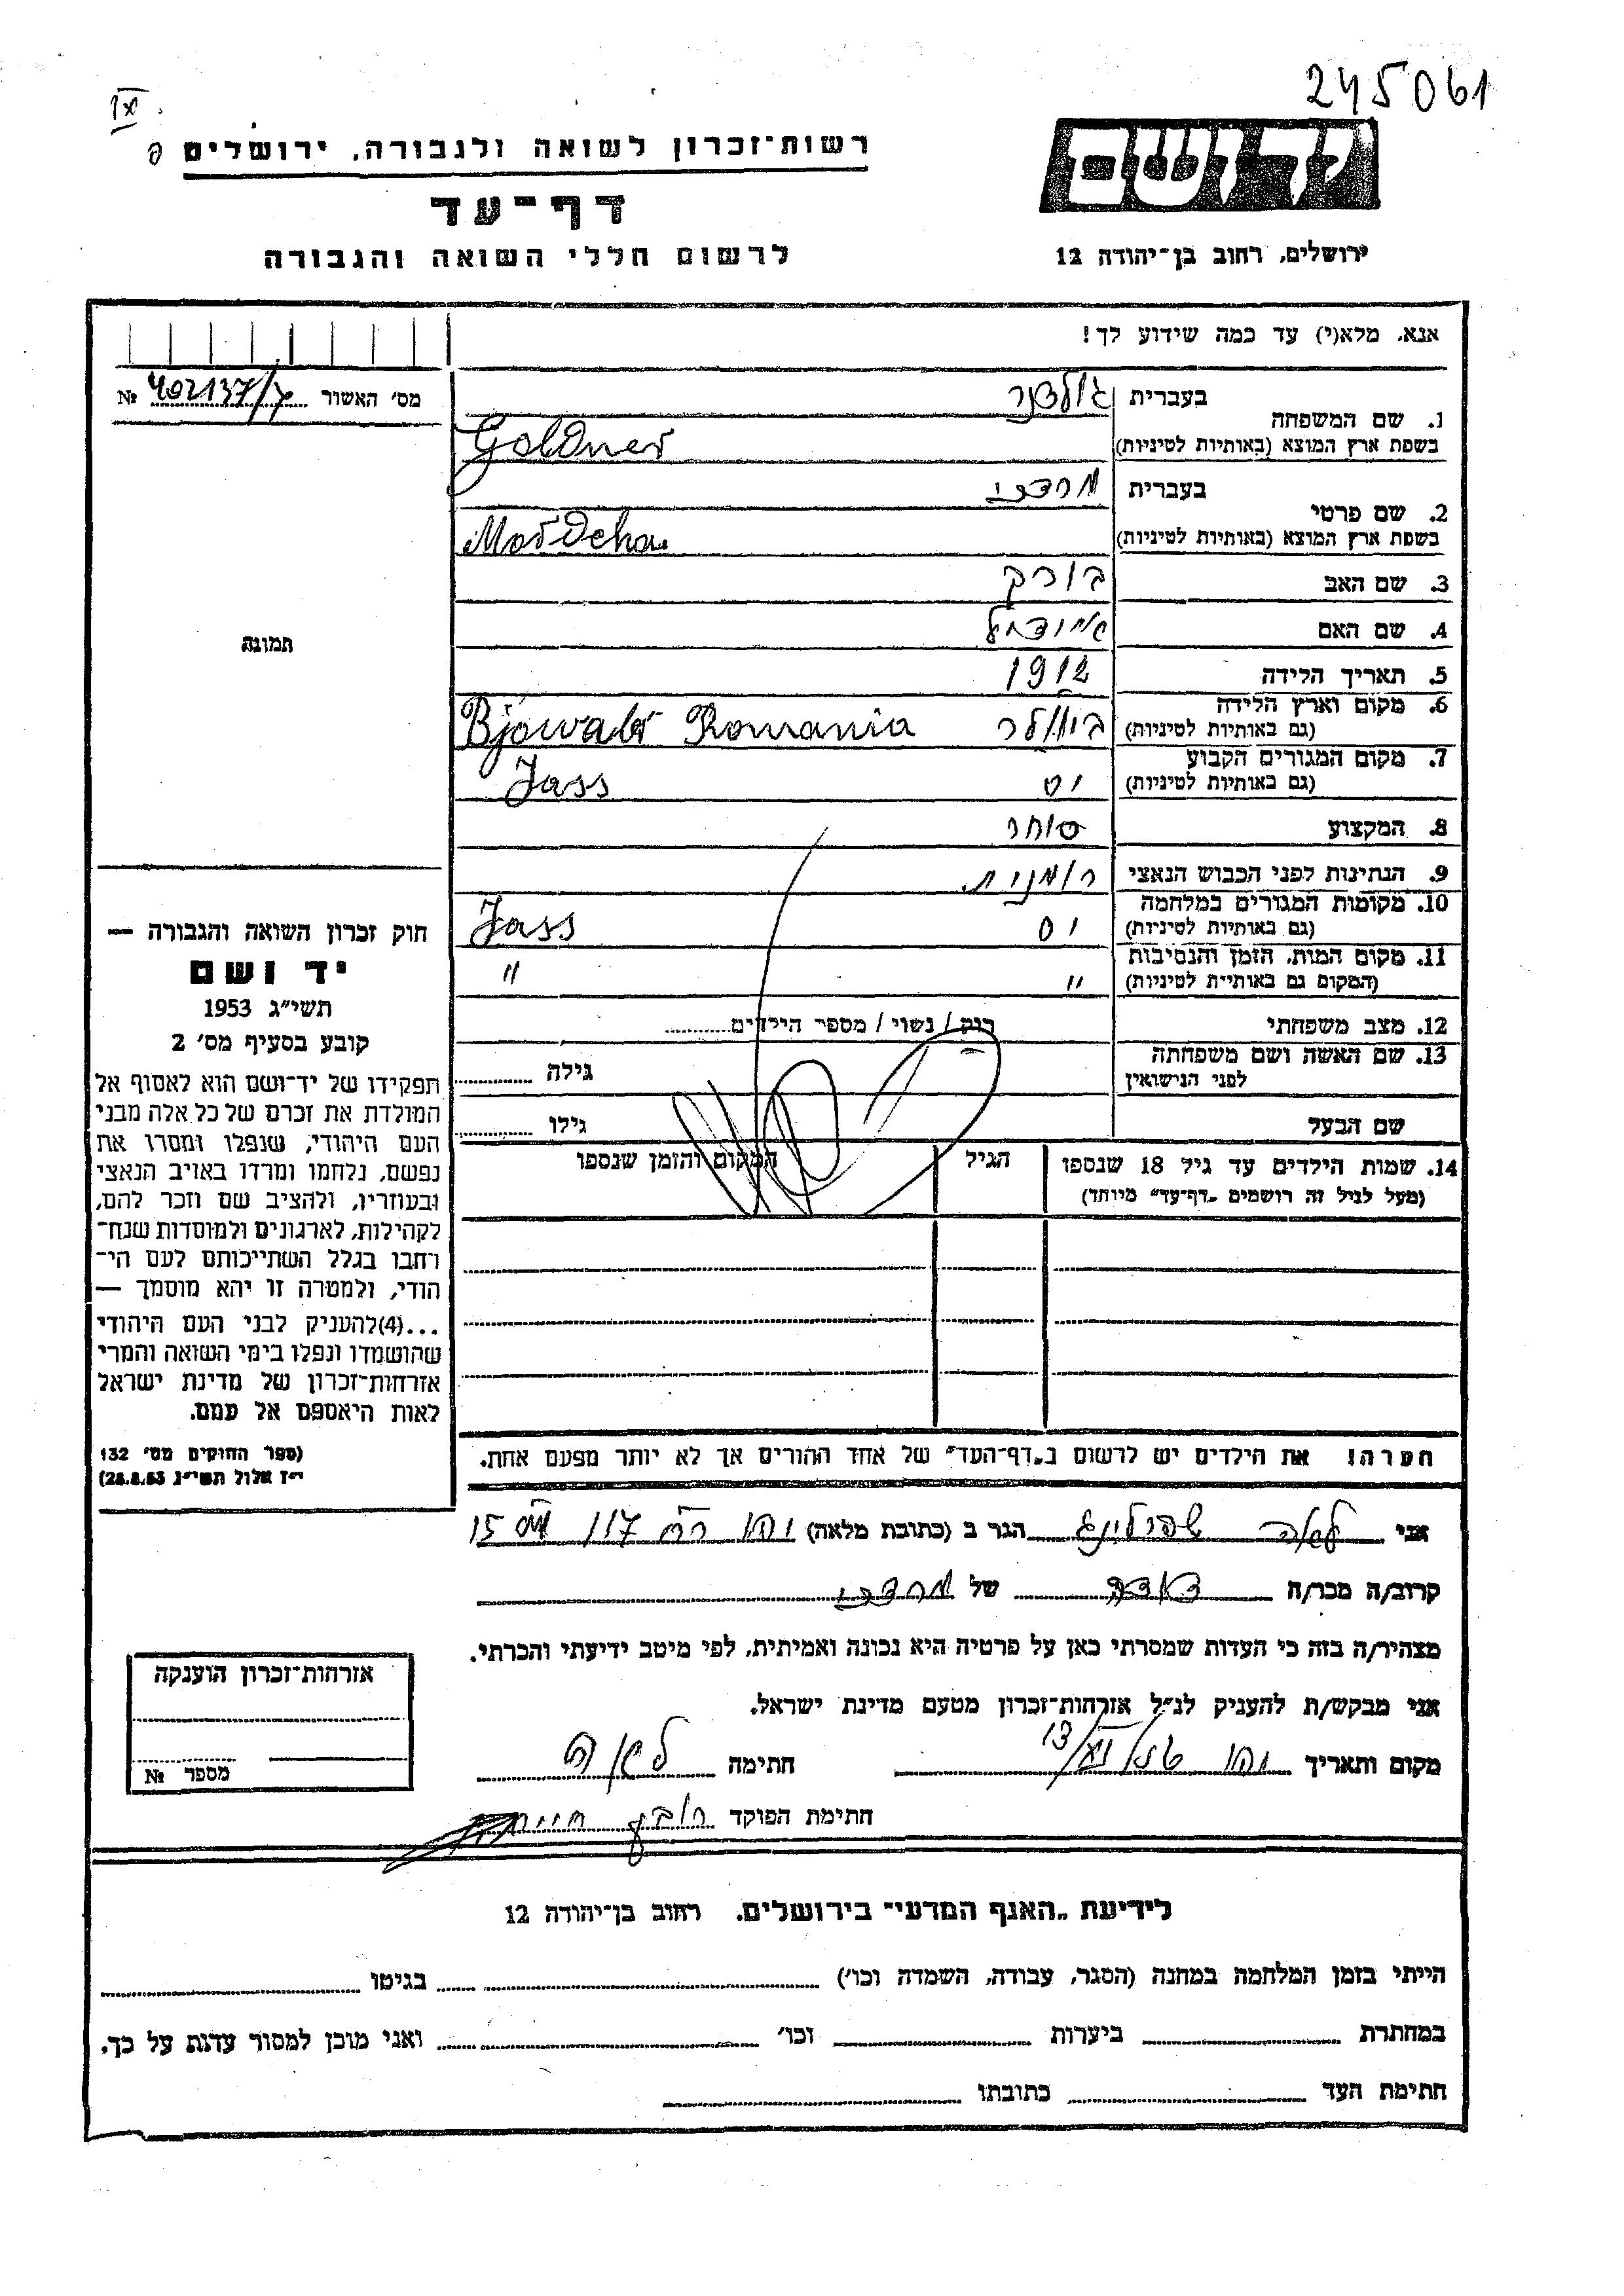 245061
IX
רשות־זכרון לשואה ולגבורה, ירושלים
דף־עד
לרשום חללי השואה והגבורה
יד ושם
ירושלים, רחוב בן־יהודה 12
אנא, מלא(י) עד כמה שידוע לך!
מס׳ האשור № 402137/7
1. שם המשפחה
בעברית גולדנר
בשפת ארץ המוצא (באותיות לטיניות) Goldner
2. שם פרטי
בעברית מרדכי
בשפת ארץ המוצא (באותיות לטיניות) Mordehai
3. שם האב ברוך
4. שם האם
5. תאריך הלידה 1912
6. מקום וארץ הלידה
(גם באותיות לטיניות) Romania
7. מקום המגורים הקבוע
(גם באותיות לטיניות) יס Jass
8. המקצוע סוחר
9. הנתינות לפני הכבוש הנאצי רומנית.
10. מקומות המגורים במלחמה
(גם באותיות לטיניות) יס Jass
11. מקום המות, הזמן והנסיבות
(המקום גם באותיות לטיניות) " "
12. מצב משפחתי רוק / נשוי / מספר הילדים
13. שם האשה ושם משפחתה
לפני הנישואין גילה
שם הבעל גילו
14. שמות הילדים עד גיל 18 שנספו
(מעל לגיל זה רושמים „דף־עד" מיוחד)
הגיל
המקום והזמן שנספו
תמונה
חוק זכרון השואה והגבורה —
יד ושם
תשי״ג 1953
קובע בסעיף מס׳ 2
תפקידו של יד־ושם הוא לאסוף אל
המולדת את זכרם של כל אלה מבני
העם היהודי, שנפלו ומסרו את
נפשם, נלחמו ומרדו באויב הנאצי
ובעוזריו, ולהציב שם וזכר להם,
לקהילות, לארגונים ולמוסדות שנח־
רחבו בגלל השתייכותם לעם הי־
הודי, ולמטרה זו יהא מוסמך —
...(4)להעניק לבני העם היהודי
שהושמדו ונפלו בימי השואה והמרי
אזרחות־זכרון של מדינת ישראל
לאות היאספם אל עמם.
(ספר החוקים מס׳ 132
י״ז אלול תשי״ג 28.8.53)
הערה! את הילדים יש לרשום ב„דף־העד" של אחד ההורים אך לא יותר מפעם אחת.
אני לאה הגר ב (כתובת מלאה) 117 15
קרוב/ה מכר/ה דודה של מרדכי
מצהיר/ה בזה כי העדות שמסרתי כאן על פרטיה היא נכונה ואמיתית, לפי מיטב ידיעתי והכרתי.
אני מבקש/ת להעניק לנ״ל אזרחות־זכרון מטעם מדינת ישראל.
מקום ותאריך חתימה לאה
חתימת הפוקד
אזרחות־זכרון הוענקה
מספר №
לידיעת „האגף המדעי" בירושלים. רחוב בן־יהודה 12
הייתי בזמן המלחמה במחנה (הסגר, עבודה, השמדה וכו׳) בגיטו
במחתרת ביערות וכו׳ ואני מוכן למסור עדות על כך.
חתימת העד כתובתו